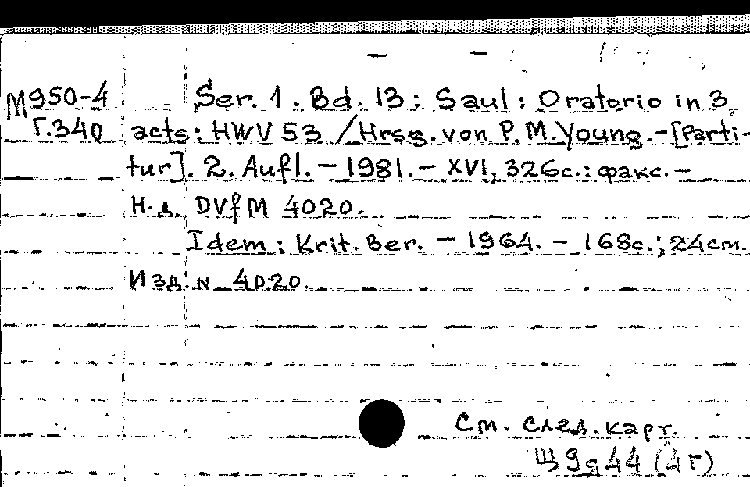 М950-4 Ser. 1. Bd. 13: Saul: Oratorio in 3
Г.340 acts: HWV 53 / Hrsg. von P.M. Young. - [Parti-
tur]. 2. Aufl. - 1981. - XVI, 326c.: факс. -
Н.д. DVfM 4020.
Idem: Krit. Ber. - 1964. - 168c.; 24см.
Изд. N 4020.
См. след. карт.
Щ9я44(4Г)